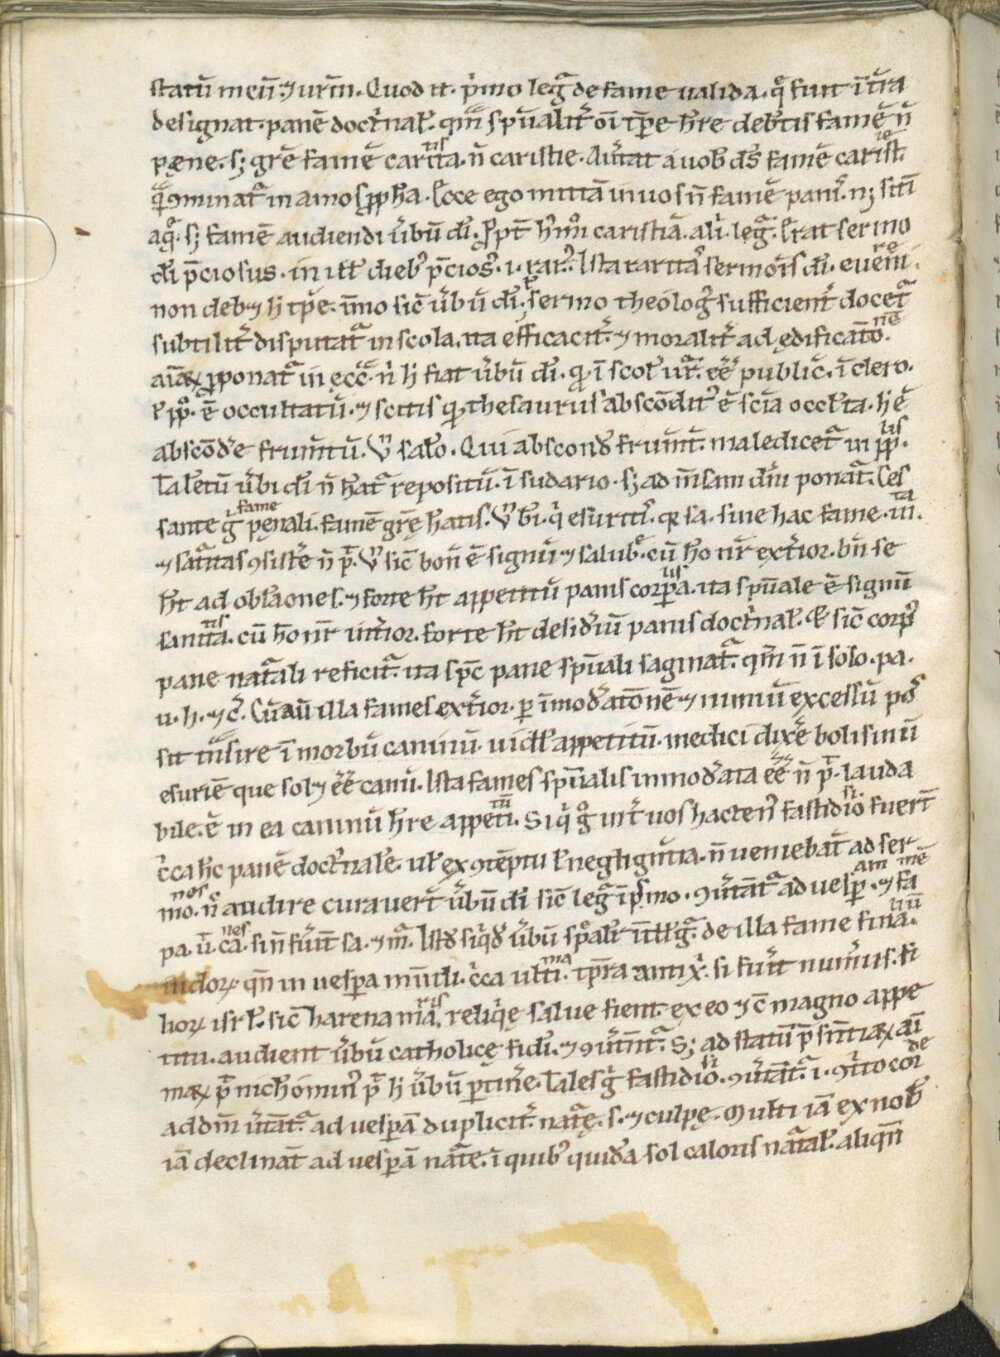 statū meū ⁊ urm̄. Quod it̄ p̄mo leg̃ de fame ualida. q̄ fuit ī t̄ra
designat panē doct̄nal̄. qm̄ sp̄ualit̄ om̄i tp̄e h̄re debetis famē n̄
pęne. sꝫ grē famē caritatis n̄ caristie. Au̅tat a uob̄ ds̄ famē carist.
q̄ ꝯminat̃ in amos ꝓph̄a. Ecce ego mittā in uos n̄ famē panis nꝫ sitī
aq̃. sꝫ famē audiendi ūbū dī. ꝓpt̄ caristiā. ali. leg̃. Erat sermo
dī p̄ciosus. in ill̄ dieb p̄cios. i. rar. Ista raritas sermōis dī. euenire
non debꝫ h tp̄e. īmo sic ūbū dī. sermo theolog sufficient̄ docet̃
subtilit̄ disputat̃ in scola. ita efficacit̄ ⁊ moralit̄ ad ędificatōnē
aīaꝝ ꝓponat̃ in ęcc̄. n̄ h fiat ūbū dī. ꝙ ī scol ut̄ ee public. ī clero.
⁊ ī pp̄o ē occultatū. ⁊ scitis ꝙ thesaurus absconditꝰ ē scīa occlta. h ē
abscōde frum̄tū. V̄ salo. Qui abscond frum̄t. maledicet̃ in pp̄lis
Talētū ūbi dī n̄ hat̃ repositū. ī sudario. sꝫ ad m̄sam dn̄i ponat̃. Ces
sante g̊ fame penali. famē grę h̄atis. V̄ bī. q̄ esuriūt. ꝙ sa. siue hac fame. uita
⁊ sat̄uitas ꝯsist̄e n̄ p̄t. V̄ sic bon̄ ē signū ⁊ salub. cū h̊o nr̄ ext̄ior. bn̄ se
ht̄ ad oblaones. ⁊ forte ht̄ appetitū panis corpalis. ita sp̄uale ē signū
sanitatis. cū h̊o nr̄ int̄ior. forte ht̄ desid̄iū panis doct̄nal̄. Et sic corpꝰ
pane nat̄ali reficit̃. ita sp̄c pane sp̄uali saginat̃. qm̄ n̄ ī solo. pa.
u. h. ⁊c̄. Cū aū illa fames ext̄ior. ꝑ īmod̄atōnē ⁊ nimiū excessū pos
sit t̄nsire ī morbū caninū. uidl̄ appetitū. medici dixē bolismū
esuriē que solꝫ ēē canū. Ista fames sp̄ualis inmod̄ata ēē n̄ p̄t. lauda
bile. ē in ea caninū h̄re appetitū. Siq̄ g̊ int̄ uos hacten̄ fastidiosi fuer̄t
c̄ca hc panē doct̄nale. ul̄ ex ꝯtēptu l̄ negligntia. n̄ ueniebat ad ser
mones. n̄ audire curauert̄ ūbū dī sic leg̃ ī ps̄mo. ꝯu̅tāt̃ ad uesperam ⁊ famē
pa. ū. canes. sin̄ fūīt sa. ⁊ m̄. Ist̄d siq̄d ūbū sp̄ali ītllig̃. de illa fame finali
iudoꝝ. qn̄ in uespera mūdi. c̄ca ultima tp̄ra antix̄. si fūīt num̄us. fi
lioꝝ isrl̄. sic harena maris. reliq̄ę salue fient. ex eo ⁊ c̄ magno appe
titu. audient ūbū catholice fidī. ⁊ ꝯu̅tn̄t̃. Sꝫ ad statū p̄sentiaꝝ aī
maꝝ p̄t nichomin p̄t h ūbū ꝑtin̄e. Tales g̊ fastidiosi. ꝯu̅tāt̃. i. ꝯto corde
ad dm̄ u̅tāt̃. ad uesꝑā duplicit̄. nat̃ę. s. ⁊ culpę. Multi iā ex nob̄
iā declināt ad uesꝑā nat̃e. ī quib quid̄a sol caloris nat̃al. aliqn̄